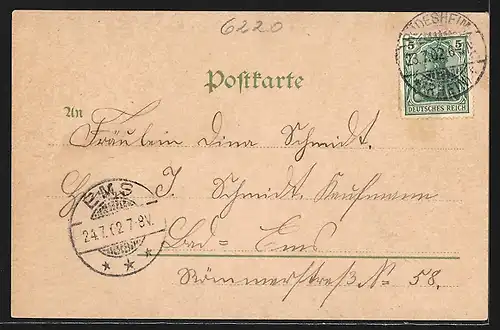 6220
RÜDESHEIM
23.7.02. 6-7
5 5
DEUTSCHES REICH
Postkarte
An
Fräulein Dina Schmidt.
J. Schmidt Kaufmann
EMS
24.7.02 7-8V.
Bad-Ems
Römmerstraße No 58.